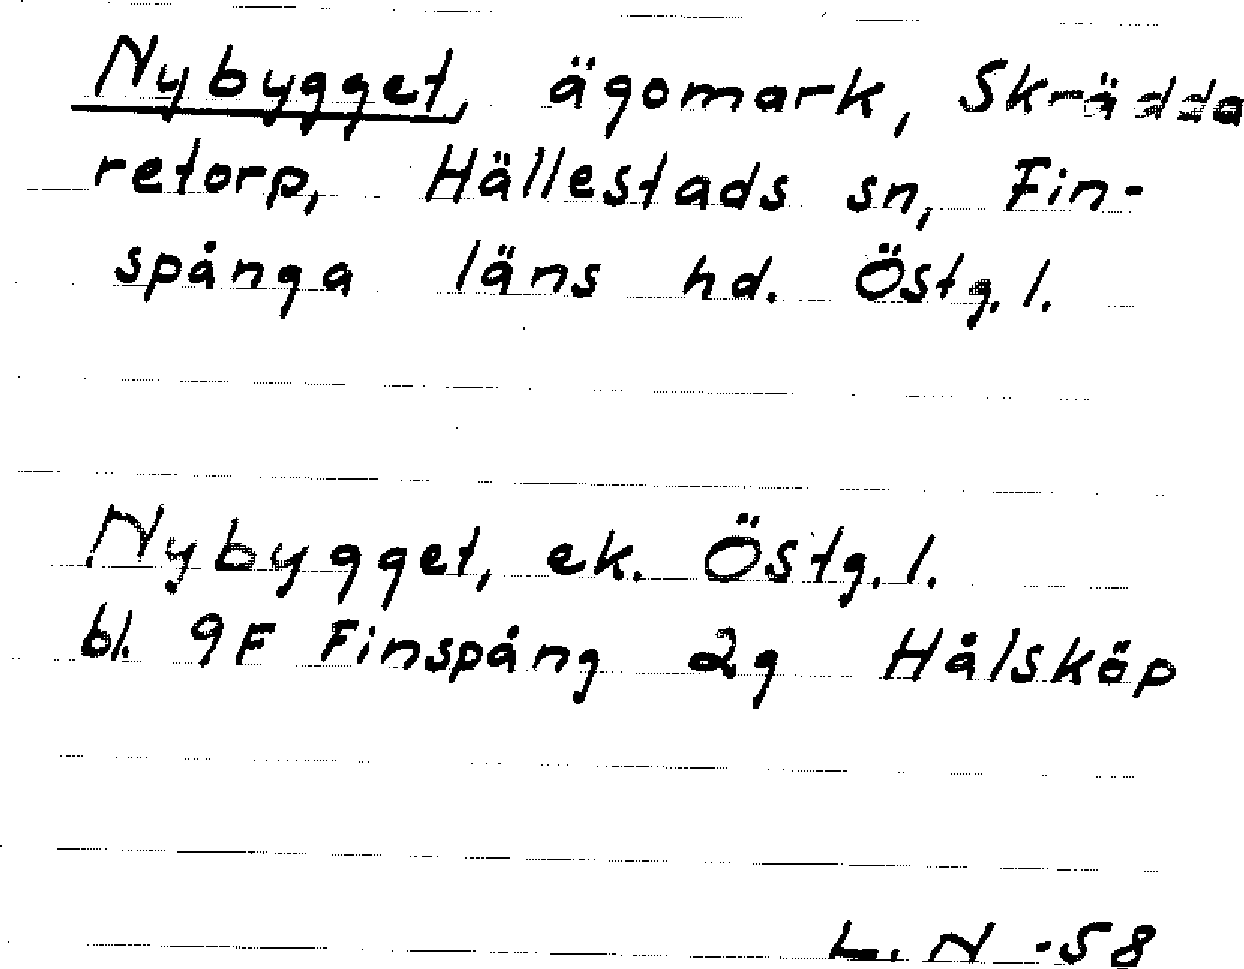 Nybygget, ägomark, Skrädda
retorp, Hällestads sn, Fin-
spånga läns hd. Östg. l.
Nybygget, ek. Östg. l.
bl. 9F Finspång 2g Hålsköp
L. N -58